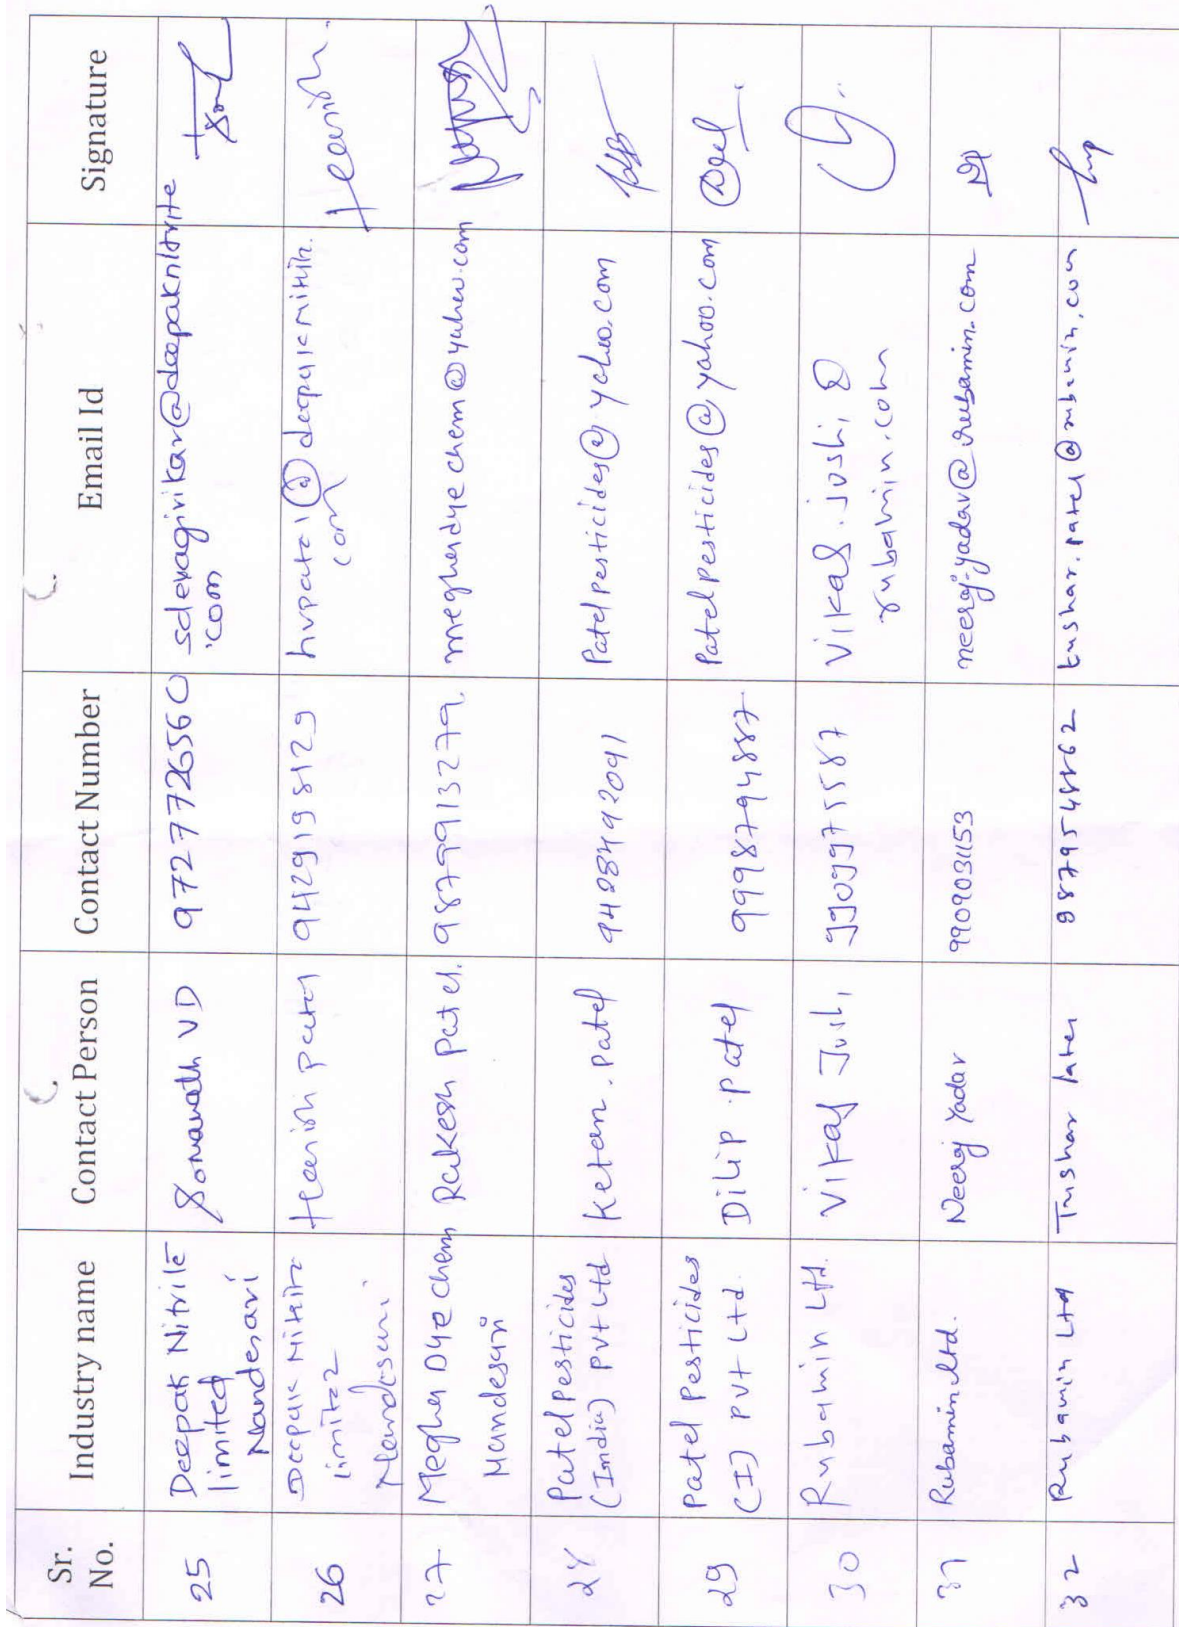 Sr. No.
Industry name
Contact Person
Contact Number
Email Id
Signature
25
Deepak Nitrite
limited
Nandesari
Somanath VD
9727726560
sdevagirikar@deepaknitrite
.com
26
Deepak Nitrite
limited
Nandesari
Heenish patel
9429198129
hvpatel@deepaknitrite.
com
27
Megha Dye Chem
Nandesari
Rakesh Patel.
9879913279
meghadyechem@yahoo.com
28
Patel Pesticides
(India) Pvt Ltd
Ketan. Patel
9428492091
Patelpesticides@yahoo.com
29
Patel Pesticides
(I) Pvt Ltd.
Dilip. Patel
9998794887
Patelpesticides@yahoo.com
30
Rubamin Ltd.
Vikas Joshi
9909975587
Vikas.joshi@
rubamin.com
31
Rubamin Ltd.
Neeraj Yadav
9909031153
neeraj.yadav@rubamin.com
32
Rubamin Ltd
Tushar Patel
9879548862
tushar.patel@rubamin.com